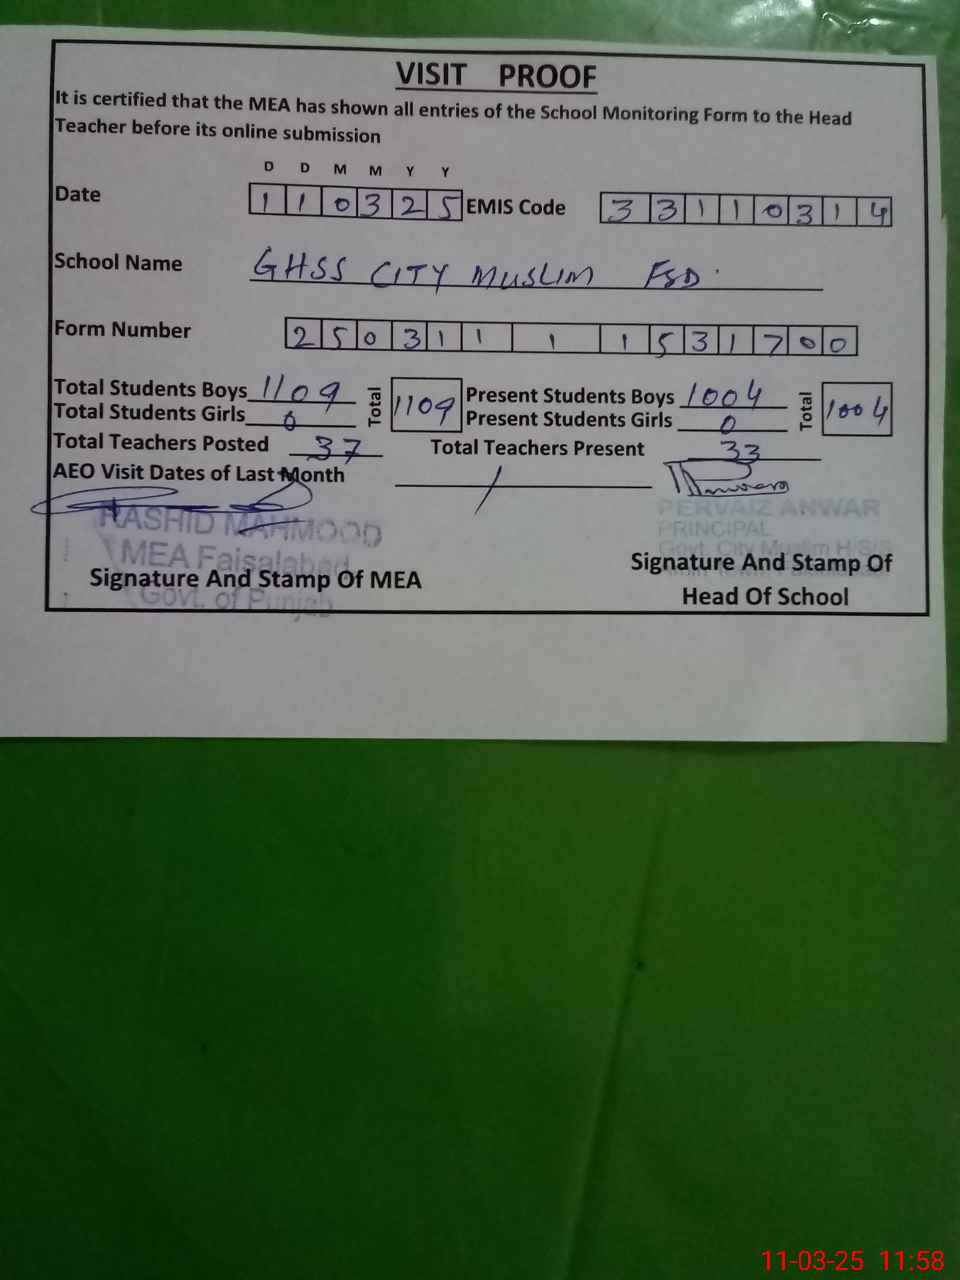 VISIT PROOF
It is certified that the MEA has shown all entries of the School Monitoring Form to the Head
Teacher before its online submission
D D M M Y Y
Date 1 1 0 3 2 5 EMIS Code 3 3 1 1 0 3 1 4
School Name GHSS CITY MUSLIM FSD.
Form Number 2 5 0 3 1 1 1 1 5 3 1 7 0 0
Total Students Boys 1109 Total 1109 Present Students Boys 1004 Total 1004
Total Students Girls 0 Present Students Girls 0
Total Teachers Posted 37 Total Teachers Present 33
AEO Visit Dates of Last Month /
RASHID MAHMOOD
MEA Faisalabad
Govt. of Punjab
PERVAIZ ANWAR
PRINCIPAL
Govt. City Muslim H/S/S
Signature And Stamp Of MEA
Signature And Stamp Of
Head Of School
11-03-25 11:58